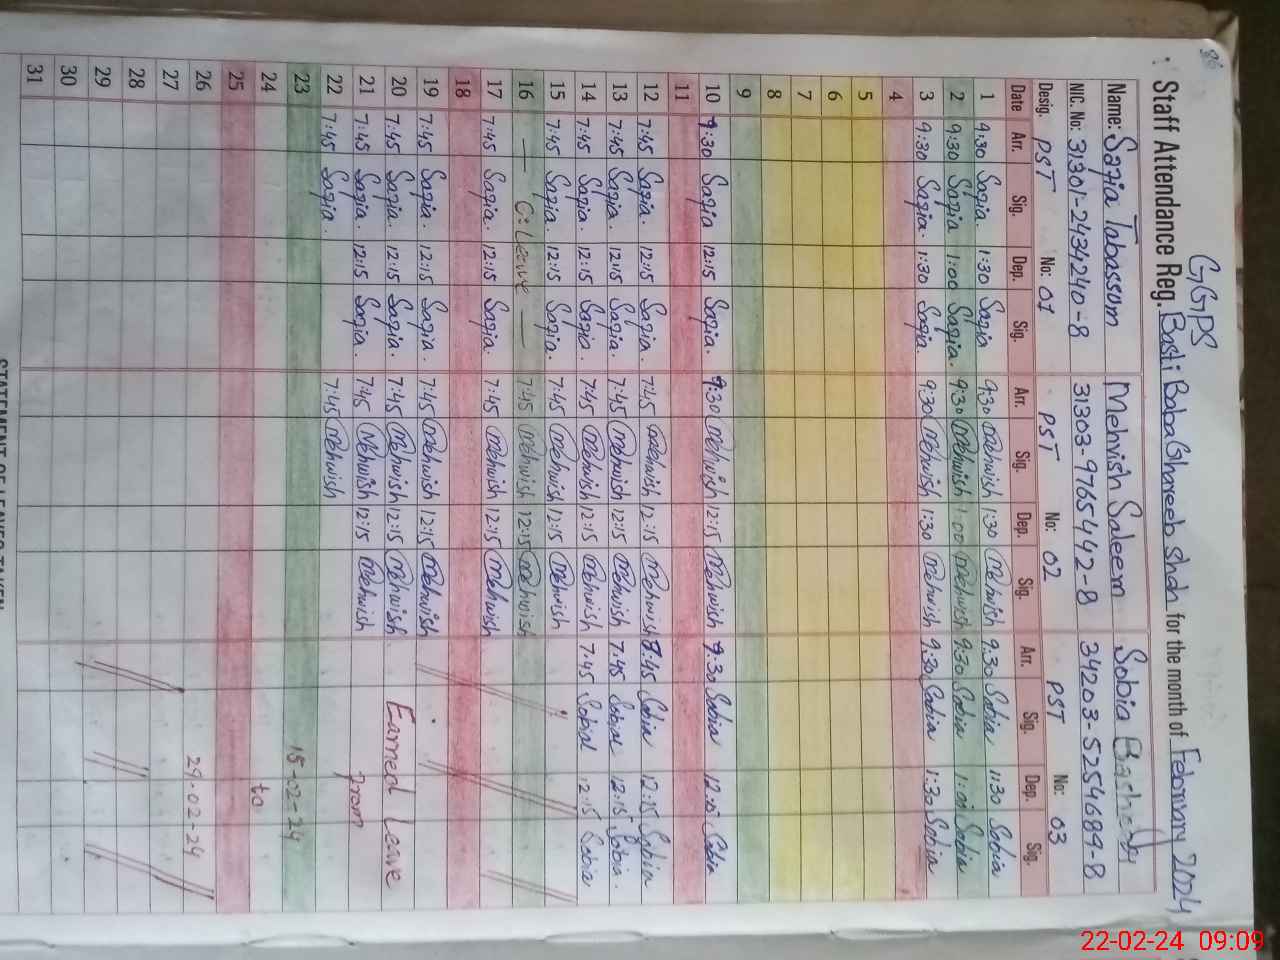 86
GGPS
Staff Attendance Reg. Basti Baba Ghareeb Shah for the month of February 2024
Name: Sazia Tabassum Mehvish Saleem Sobia
NIC. No: 31301-2434240-8 31303-9765442-8 34203-5254689-8
Desig. PST No: 01 PST No: 02 PST No: 03
Date Arr. Sig. Dep. Sig. Arr. Sig. Dep. Sig. Arr. Sig. Dep. Sig.
1 9:30 Sazia 1:30 Sazia 9:30 Mehwish 1:30 Mehwish 9:30 Sobia 1:30 Sobia
2 9:30 Sazia 1:00 Sazia. 9:30 Mehwish 1:00 Mehwish 9:30 Sobia 1:00 Sobia
3 9:30 Sazia. 1:30 Sazia. 9:30 Mehwish 1:30 Mehwish 9:30 Sobia 1:30 Sobia
4
5
6
7
8
9
10 9:30 Sazia 12:15 Sazia. 9:30 Mehwish 12:15 Mehwish 9:30 Sobia 12:15 Sobia
11
12 7:45 Sazia. 12:15 Sazia. 7:45 Mehwish 12:15 Mehwish 7:45 Sobia 12:15 Sobia
13 7:45 Sazia. 12:15 Sazia. 7:45 Mehwish 12:15 Mehwish 7:45 Sobia 12:15 Sobia.
14 7:45 Sazia. 12:15 Sazia. 7:45 Mehwish 12:15 Mehwish 7:45 Sobia 12:15 Sobia
15 7:45 Sazia. 12:15 Sazia. 7:45 Mehwish 12:15 Mehwish
16 — C. Leave — 7:45 Mehwish 12:15 Mehwish
17 7:45 Sazia. 12:15 Sazia. 7:45 Mehwish 12:15 Mehwish
18
19 7:45 Sazia. 12:15 Sazia. 7:45 Mehwish 12:15 Mehwish
20 7:45 Sazia. 12:15 Sazia. 7:45 Mehwish 12:15 Mehwish Earned Leave
21 7:45 Sazia. 12:15 Sazia. 7:45 Mehwish 12:15 Mehwish from
22 7:45 Sazia. 7:45 Mehwish
23 15-02-24
24 to
25
26 29-02-24
27
28
29
30
31
STATEMENT OF LEAVES TAKEN
22-02-24 09:09